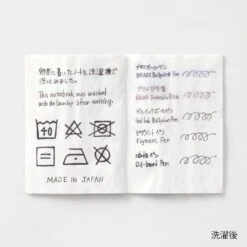 野帳に書いたノートを洗濯機で
洗ってみました。
This notebook was washed
with the laundry after writing.
40
MADE IN JAPAN
BRASS Ballpoint Pen
ゲルインクボールペン
Gel Ink Ballpoint Pen
ピグメントペン
Pigment Pen
油性ペン
Oil-based Pen
洗濯後